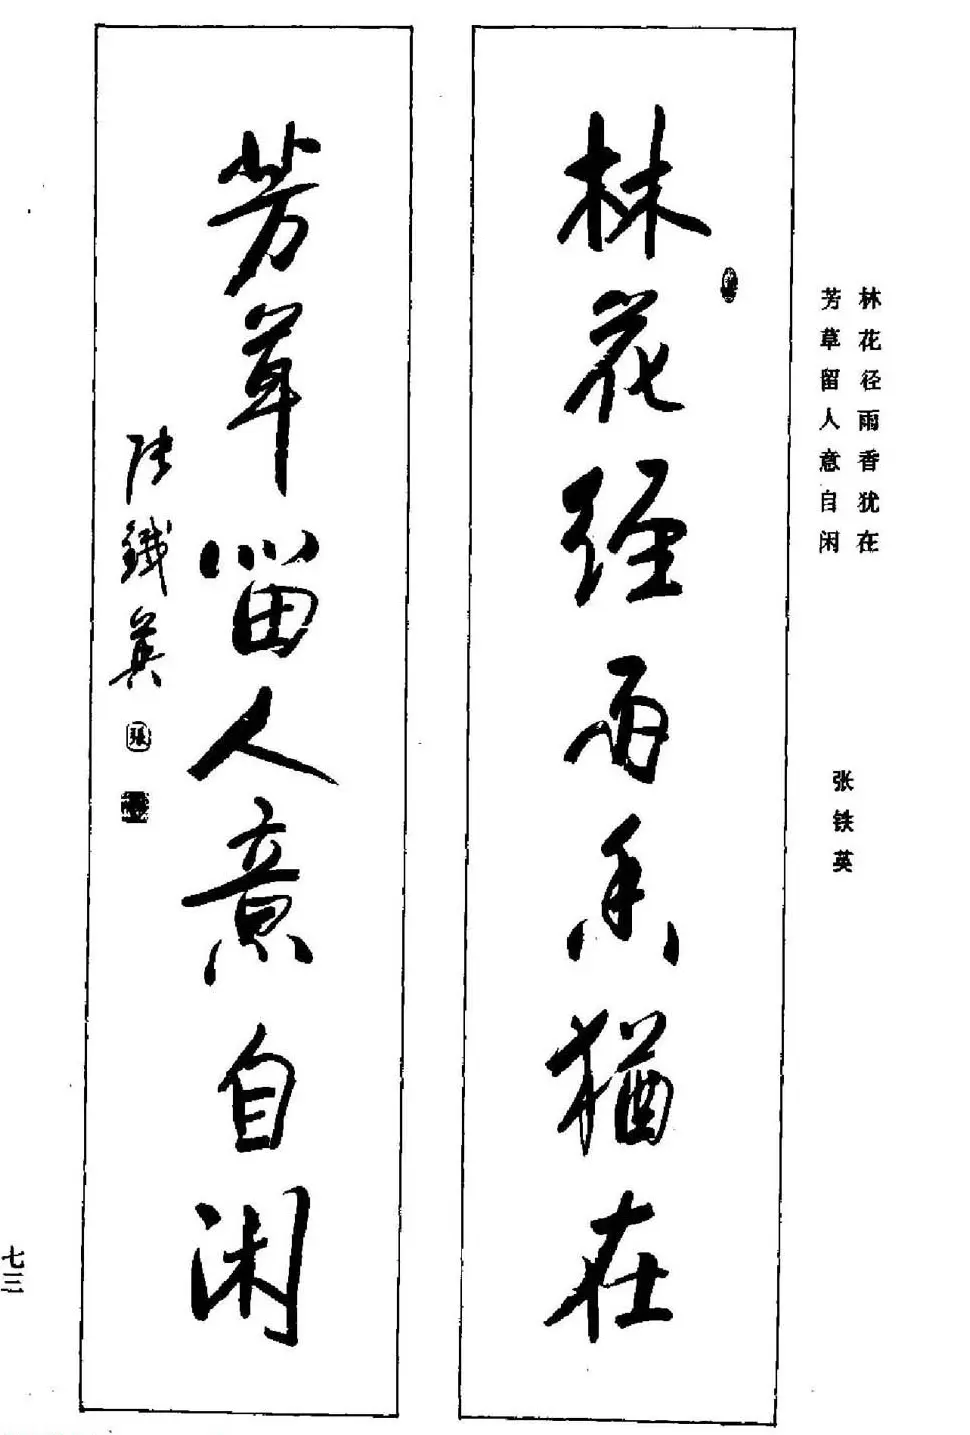 林花径雨香犹在
芳草留人意自闲
张铁英
林花经雨香犹在
芳草留人意自闲
张鐵英
張
七三